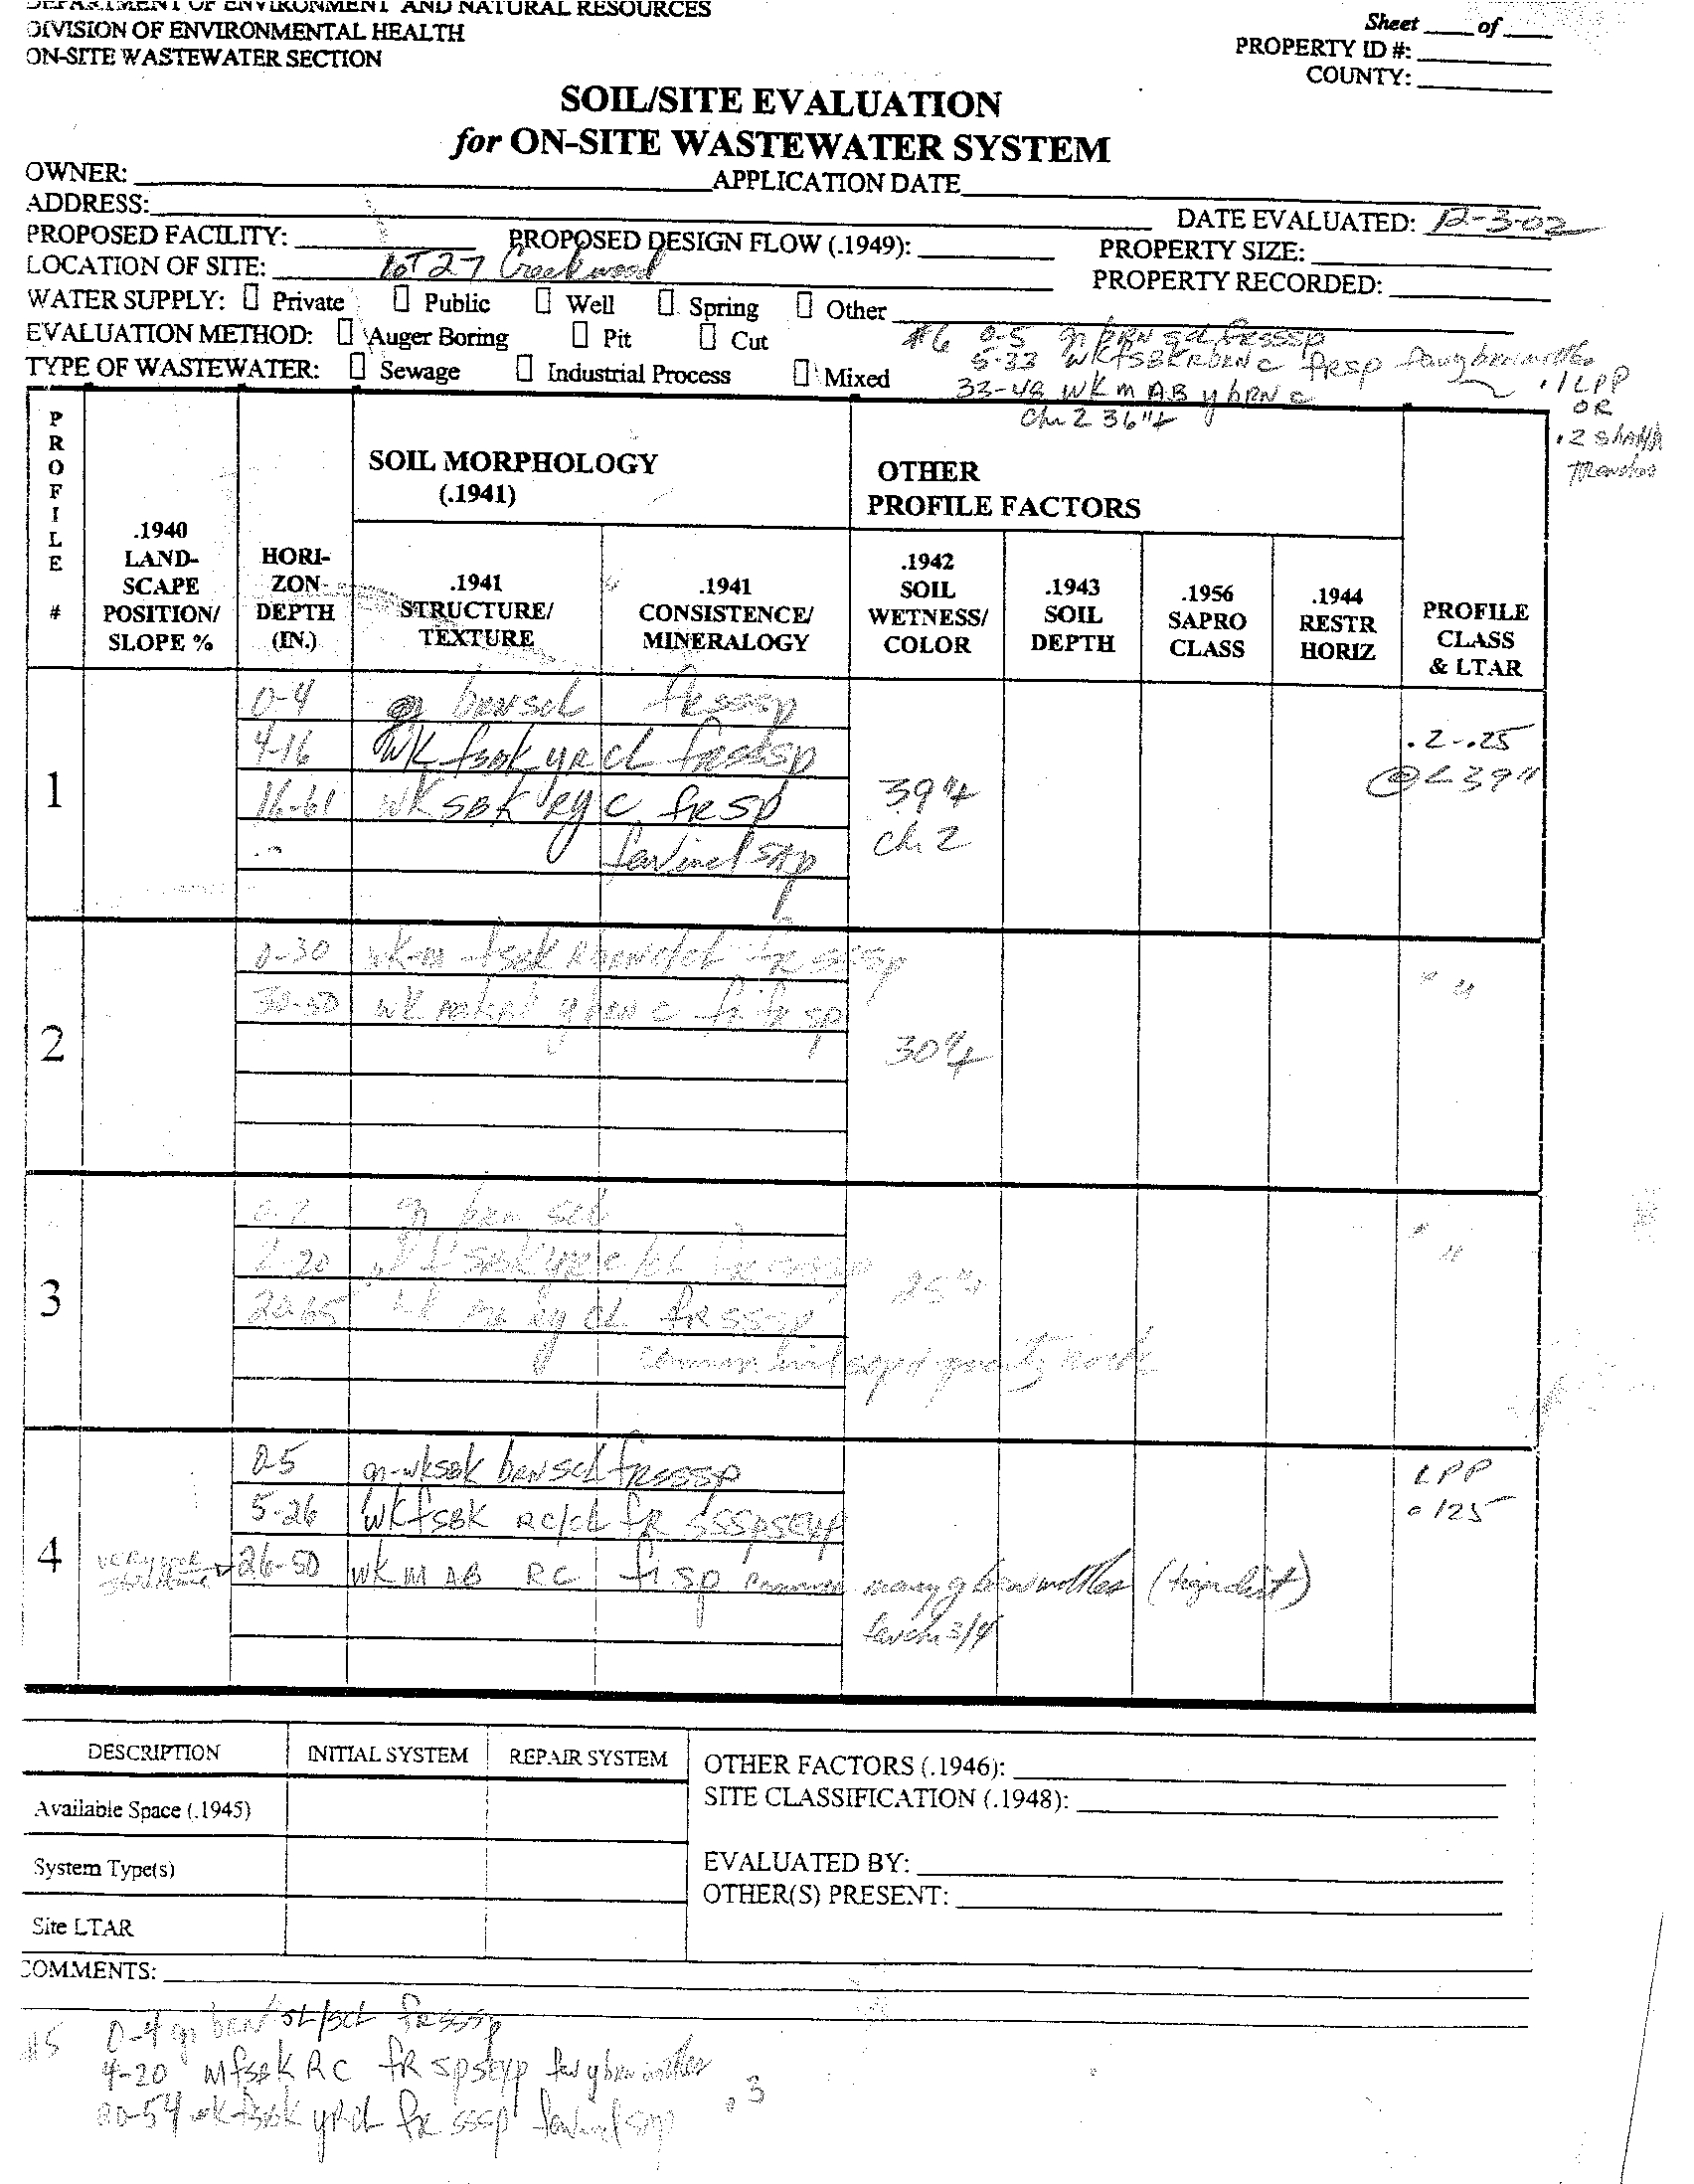 DEPARTMENT OF ENVIRONMENT AND NATURAL RESOURCES
DIVISION OF ENVIRONMENTAL HEALTH
ON-SITE WASTEWATER SECTION
Sheet ____ of ____
PROPERTY ID #:
COUNTY:
SOIL/SITE EVALUATION
for ON-SITE WASTEWATER SYSTEM
OWNER:
APPLICATION DATE
ADDRESS:
DATE EVALUATED: 12-3-02
PROPOSED FACILITY:
PROPOSED DESIGN FLOW (.1949):
PROPERTY SIZE:
LOCATION OF SITE: LOT 27 Creekwood
PROPERTY RECORDED:
WATER SUPPLY: Private Public Well Spring Other
EVALUATION METHOD: Auger Boring Pit Cut
TYPE OF WASTEWATER: Sewage Industrial Process Mixed
#6 0-5 gr brn scl frsssp
5-33 wkfsbk Rbrn c frsp few ybrn mottles
33-48 wk m AB y brn c
ch 2 36"+
.1 LPP
OR
.2 shallow
PROFILE #
.1940 LAND-SCAPE POSITION/ SLOPE %
HORI-ZON DEPTH (IN.)
SOIL MORPHOLOGY
(.1941)
.1941 STRUCTURE/ TEXTURE
.1941 CONSISTENCE/ MINERALOGY
OTHER
PROFILE FACTORS
.1942 SOIL WETNESS/ COLOR
.1943 SOIL DEPTH
.1956 SAPRO CLASS
.1944 RESTR HORIZ
PROFILE CLASS & LTAR
1
0-4 brn scl frsssp
4-16 wk fsbk yr cl frsssp
16-61 wk sbk Ry c frsp
few incl sap
39"+
ch 2
.2-.25
@<39"
2
0-30 wk-m fsbk Rbrn c/cl fr sssp
30-50 wk ybrn c fr fi sp
30"+
"  "
3
0-7 gr brn scl
7-20 fsbk yr c/cl fr sssp
20-65 wk ma ry cl fr sssp
common quartz rock
25"+
"  "
4
0-5 gr-wksbk brn scl frsssp
5-26 wkfsbk RC/cl fr ssspsexp
very weak structure
26-50 wk m AB RC fi sp many y brn mottles
few ch 3/4
LPP
.125
DESCRIPTION INITIAL SYSTEM REPAIR SYSTEM
Available Space (.1945)
System Type(s)
Site LTAR
OTHER FACTORS (.1946):
SITE CLASSIFICATION (.1948):
EVALUATED BY:
OTHER(S) PRESENT:
COMMENTS:
#5 0-4 gr brn sl/scl frsssp
4-20 mfsbk RC fR spsexp few ybrn mottles
20-54 wk fsbk yr cl fr sssp few incl sap .3